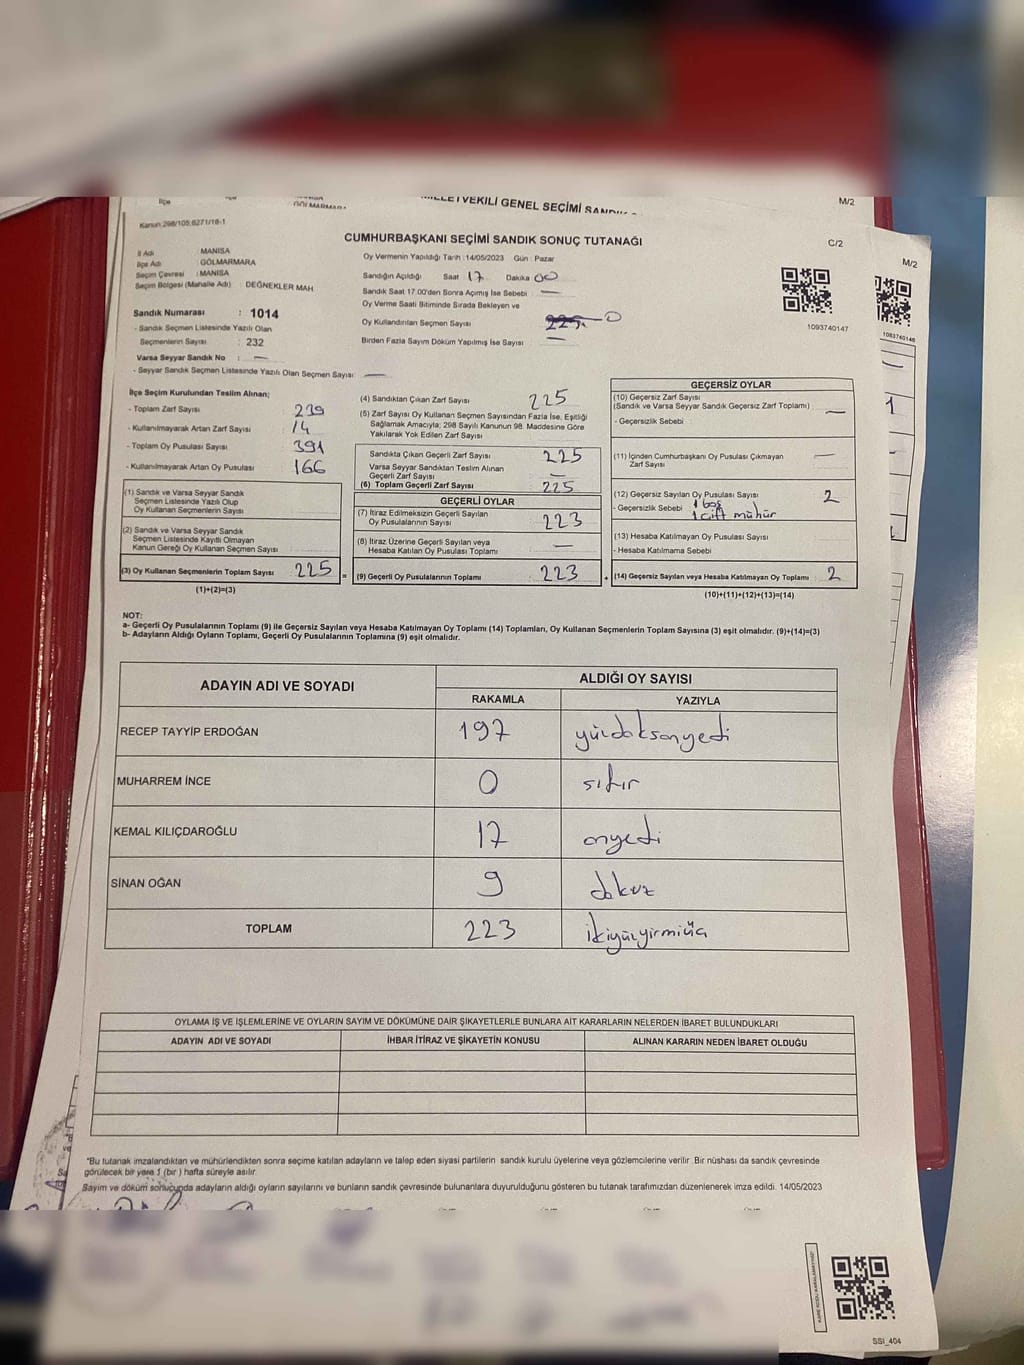 MİLLETVEKİLİ GENEL SEÇİMİ
M/2
İlçe
GÖLMARMARA
Kanun:298/105;6271/16-1
CUMHURBAŞKANI SEÇİMİ SANDIK SONUÇ TUTANAĞI
C/2
M/2
İl Adı : MANİSA
İlçe Adı : GÖLMARMARA
Seçim Çevresi : MANİSA
Seçim Bölgesi (Mahalle Adı) : DEĞNEKLER MAH
Oy Vermenin Yapıldığı Tarih :14/05/2023 Gün : Pazar
Sandığın Açıldığı Saat 17 Dakika 00
Sandık Saat 17.00'den Sonra Açımış İse Sebebi —
Oy Verme Saati Bitiminde Sırada Bekleyen ve
Oy Kullandırılan Seçmen Sayısı 225 0
Birden Fazla Sayım Döküm Yapılmış İse Sayısı —
1093740147
1093740146
Sandık Numarası : 1014
- Sandık Seçmen Listesinde Yazılı Olan
Seçmenlerin Sayısı : 232
Varsa Seyyar Sandık No : —
- Seyyar Sandık Seçmen Listesinde Yazılı Olan Seçmen Sayısı : —
İlçe Seçim Kurulundan Teslim Alınan;
- Toplam Zarf Sayısı : 239
- Kullanılmayarak Artan Zarf Sayısı : 14
- Toplam Oy Pusulası Sayısı : 391
- Kullanılmayarak Artan Oy Pusulası : 166
(1) Sandık ve Varsa Seyyar Sandık
Seçmen Listesinde Yazılı Olup
Oy Kullanan Seçmenlerin Sayısı
(2) Sandık ve Varsa Seyyar Sandık
Seçmen Listesinde Kayıtlı Olmayan
Kanun Gereği Oy Kullanan Seçmen Sayısı
(3) Oy Kullanan Seçmenlerin Toplam Sayısı 225
(1)+(2)=(3)
=
(4) Sandıktan Çıkan Zarf Sayısı 225
(5) Zarf Sayısı Oy Kullanan Seçmen Sayısından Fazla İse, Eşitliği
Sağlamak Amacıyla; 298 Sayılı Kanunun 98. Maddesine Göre
Yakılarak Yok Edilen Zarf Sayısı
Sandıkta Çıkan Geçerli Zarf Sayısı 225
Varsa Seyyar Sandıktan Teslim Alınan
Geçerli Zarf Sayısı —
(6) Toplam Geçerli Zarf Sayısı 225
GEÇERLİ OYLAR
(7) İtiraz Edilmeksizin Geçerli Sayılan
Oy Pusulalarının Sayısı 223
(8) İtiraz Üzerine Geçerli Sayılan veya
Hesaba Katılan Oy Pusulası Toplamı —
(9) Geçerli Oy Pusulalarının Toplamı 223
+
GEÇERSİZ OYLAR
(10) Geçersiz Zarf Sayısı
(Sandık ve Varsa Seyyar Sandık Geçersiz Zarf Toplamı) —
- Geçersizlik Sebebi
(11) İçinden Cumhurbaşkanı Oy Pusulası Çıkmayan
Zarf Sayısı —
(12) Geçersiz Sayılan Oy Pusulası Sayısı 2
- Geçersizlik Sebebi 1 boş
1 çift mühür
(13) Hesaba Katılmayan Oy Pusulası Sayısı
- Hesaba Katılmama Sebebi
(14) Geçersiz Sayılan veya Hesaba Katılmayan Oy Toplamı 2
(10)+(11)+(12)+(13)=(14)
NOT:
a- Geçerli Oy Pusulalarının Toplamı (9) ile Geçersiz Sayılan veya Hesaba Katılmayan Oy Toplamı (14) Toplamları, Oy Kullanan Seçmenlerin Toplam Sayısına (3) eşit olmalıdır. (9)+(14)=(3)
b- Adayların Aldığı Oyların Toplamı, Geçerli Oy Pusulalarının Toplamına (9) eşit olmalıdır.
ADAYIN ADI VE SOYADI
ALDIĞI OY SAYISI
RAKAMLA YAZIYLA
RECEP TAYYİP ERDOĞAN 197 yüzdoksanyedi
MUHARREM İNCE 0 sıfır
KEMAL KILIÇDAROĞLU 17 onyedi
SİNAN OĞAN 9 dokuz
TOPLAM 223 ikiyüzyirmiüç
OYLAMA İŞ VE İŞLEMLERİNE VE OYLARIN SAYIM VE DÖKÜMÜNE DAİR ŞİKAYETLERLE BUNLARA AİT KARARLARIN NELERDEN İBARET BULUNDUKLARI
ADAYIN ADI VE SOYADI İHBAR İTİRAZ VE ŞİKAYETİN KONUSU ALINAN KARARIN NEDEN İBARET OLDUĞU
"Bu tutanak imzalandıktan ve mühürlendikten sonra seçime katılan adayların ve talep eden siyasi partilerin sandık kurulu üyelerine veya gözlemcilerine verilir .Bir nüshası da sandık çevresinde
görülecek bir yere 1 (bir ) hafta süreyle asılır.
Sayım ve döküm sonucunda adayların aldığı oyların sayılarını ve bunların sandık çevresinde bulunanlara duyurulduğunu gösteren bu tutanak tarafımızdan düzenlenerek imza edildi. 14/05/2023
SSI_404